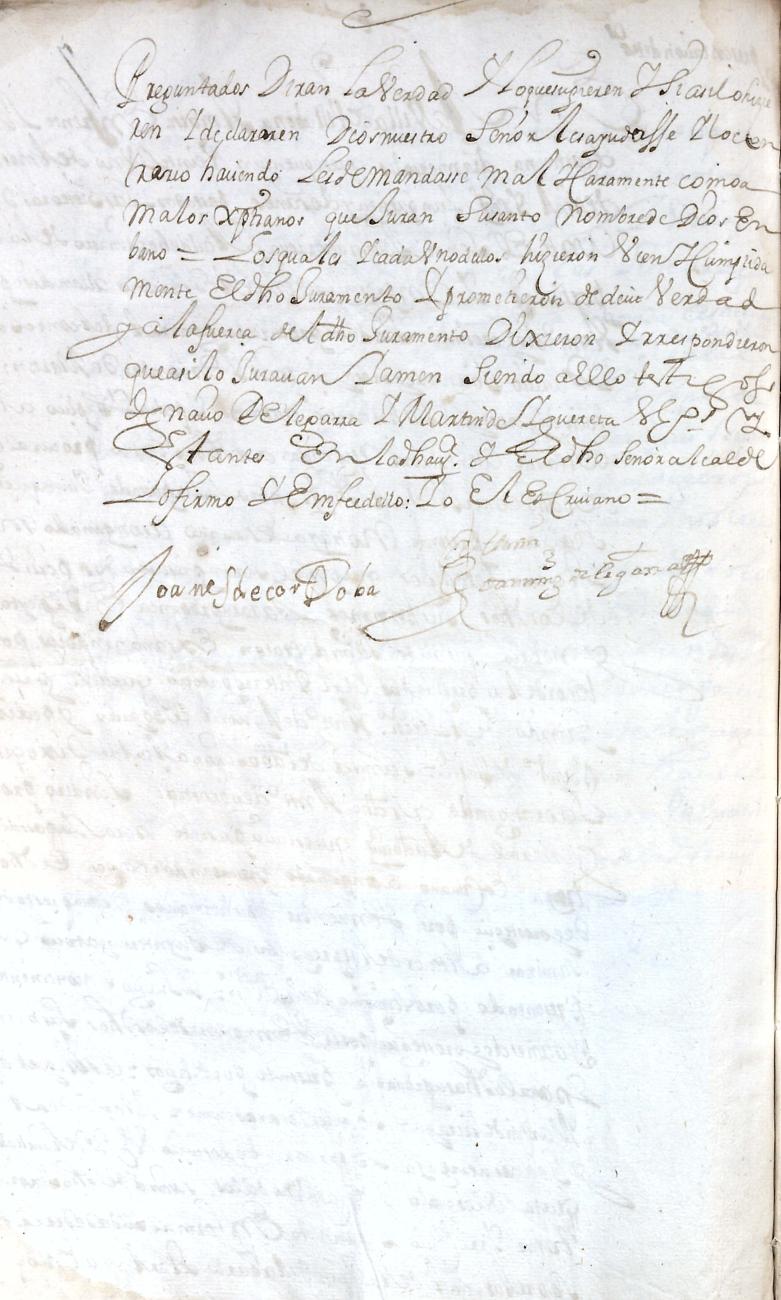 Preguntados Diran La Verdad Y lo que supieren Y Si asi lo hizie
ren Y declararen Dios nuestro Señor les ayudasse Y lo con
trario haviendo Les demandasse mal Y Caramente como a
malos xpthanos que Juran Su santo Nombre de Dios En
bano = Los quales Y cada Uno dellos hizieron Vien Y Cumplida
mente El dho Juramento Y prometieron de decir Verdad
y a la fuerça del dho Juramento Dixieron Y rrespondieron
que asi lo Juravan Y amen Siendo a ello test
de naud De leparra Y Martin de
Estantes En la dha Y El dho Señor alcalde
Lo firmo Y En fee dello: Yo El Escrivano =
Joanes de cordoba